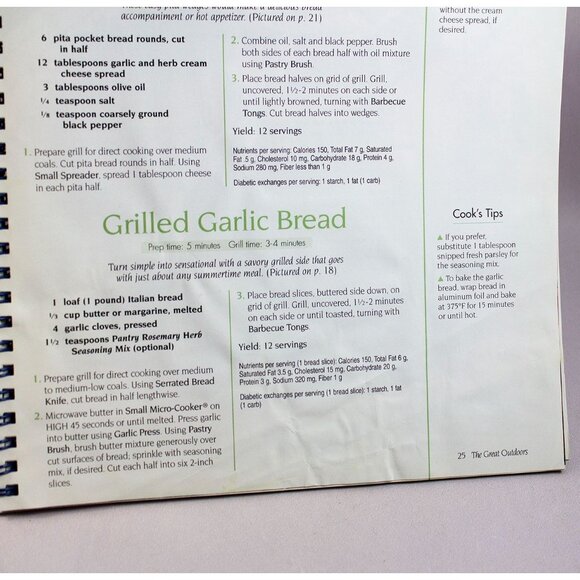 accompaniment or hot appetizer. (Pictured on p. 21)
6 pita pocket bread rounds, cut
in half
12 tablespoons garlic and herb cream
cheese spread
3 tablespoons olive oil
1/4 teaspoon salt
1/8 teaspoon coarsely ground
black pepper
1. Prepare grill for direct cooking over medium
coals. Cut pita bread rounds in half. Using
Small Spreader, spread 1 tablespoon cheese
in each pita half.
2. Combine oil, salt and black pepper. Brush
both sides of each bread half with oil mixture
using Pastry Brush.
3. Place bread halves on grid of grill. Grill,
uncovered, 1½-2 minutes on each side or
until lightly browned, turning with Barbecue
Tongs. Cut bread halves into wedges.
Yield: 12 servings
Nutrients per serving: Calories 150, Total Fat 7 g, Saturated
Fat .5 g, Cholesterol 10 mg, Carbohydrate 18 g, Protein 4 g,
Sodium 280 mg, Fiber less than 1 g
Diabetic exchanges per serving: 1 starch, 1 fat (1 carb)
without the cream
cheese spread, if
desired.
Grilled Garlic Bread
Prep time: 5 minutes Grill time: 3-4 minutes
Turn simple into sensational with a savory grilled side that goes
with just about any summertime meal. (Pictured on p. 18)
1 loaf (1 pound) Italian bread
1/3 cup butter or margarine, melted
4 garlic cloves, pressed
1½ teaspoons Pantry Rosemary Herb
Seasoning Mix (optional)
1. Prepare grill for direct cooking over medium
to medium-low coals. Using Serrated Bread
Knife, cut bread in half lengthwise.
2. Microwave butter in Small Micro-Cooker® on
HIGH 45 seconds or until melted. Press garlic
into butter using Garlic Press. Using Pastry
Brush, brush butter mixture generously over
cut surfaces of bread; sprinkle with seasoning
mix, if desired. Cut each half into six 2-inch
slices.
3. Place bread slices, buttered side down, on
grid of grill. Grill, uncovered, 1½-2 minutes
on each side or until toasted, turning with
Barbecue Tongs.
Yield: 12 servings
Nutrients per serving (1 bread slice): Calories 150, Total Fat 6 g,
Saturated Fat 3.5 g, Cholesterol 15 mg, Carbohydrate 20 g,
Protein 3 g, Sodium 320 mg, Fiber 1 g
Diabetic exchanges per serving (1 bread slice): 1 starch, 1 fat
(1 carb)
Cook's Tips
▲ If you prefer,
substitute 1 tablespoon
snipped fresh parsley for
the seasoning mix.
▲ To bake the garlic
bread, wrap bread in
aluminum foil and bake
at 375°F for 15 minutes
or until hot.
25 The Great Outdoors